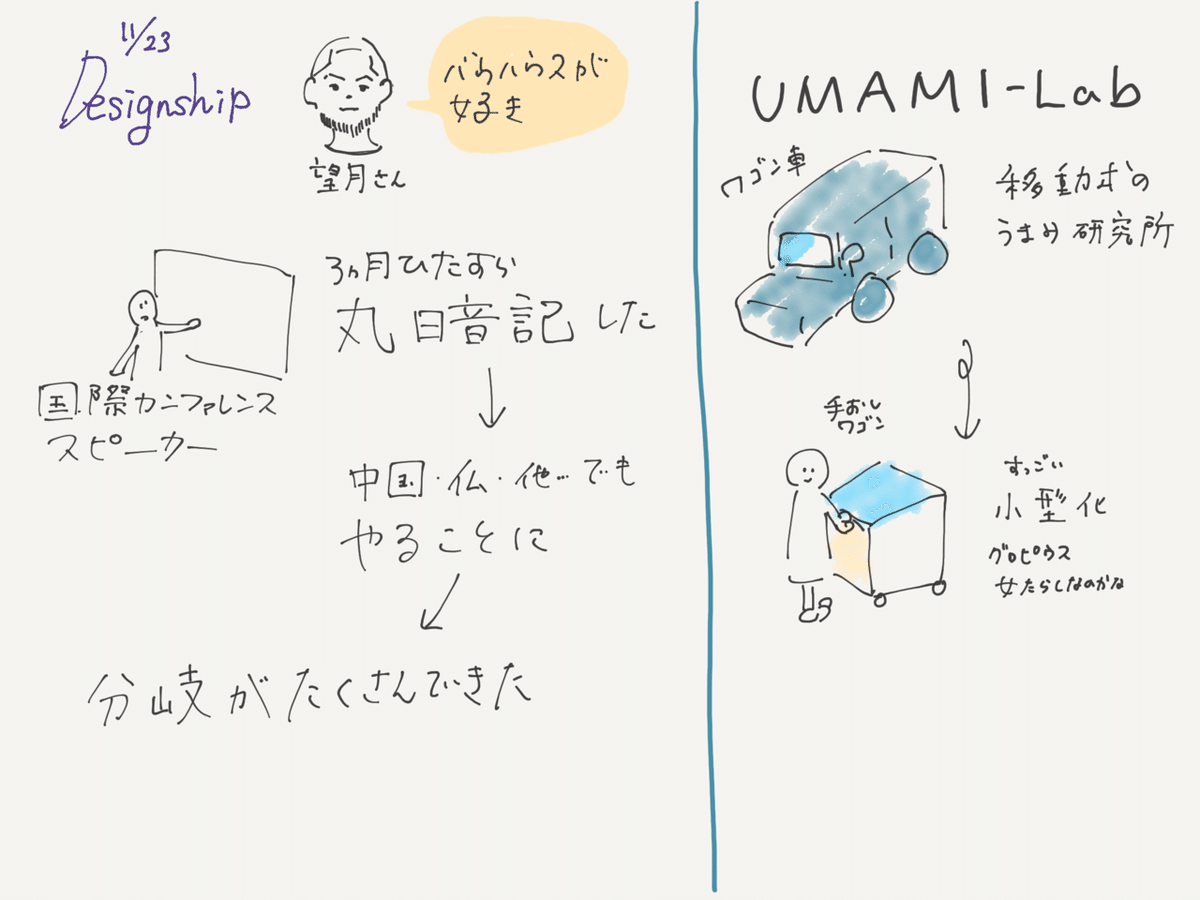 11/23
Designship
バウハウスが
好き
望月さん
3ヵ月ひたすら
丸暗記した
国際カンファレンス
スピーカー
中国・仏・他…でも
やることに
分岐がたくさんできた
UMAMI-Lab
ワゴン車
移動式の
うまみ研究所
手おし
ワゴン
すっごい
小型化
グロピウス
女たらしなのかな